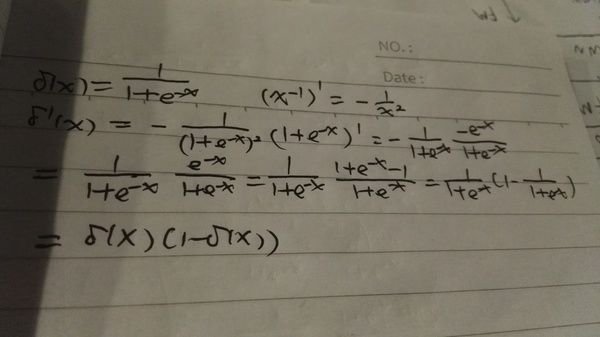 NO.:
Date:
δ(x) = 1/(1+e^-x) (x^-1)' = - 1/x^2
δ'(x) = - 1/(1+e^-x)^2 (1+e^-x)' = - 1/(1+e^-x) -e^-x/(1+e^-x)
= 1/(1+e^-x) e^-x/(1+e^-x) = 1/(1+e^-x) (1+e^-x-1)/(1+e^-x) = 1/(1+e^-x) (1 - 1/(1+e^-x))
= δ(x)(1-δ(x))